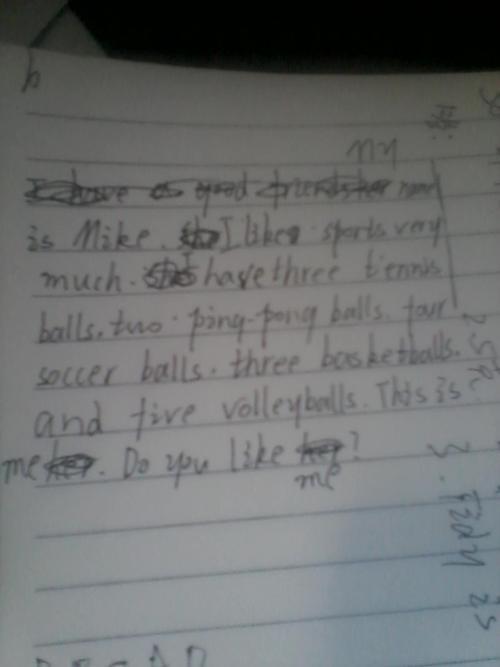 h
my
I have a good friend her name
is Mike. I like sports very
much. I have three tennis
balls. two ping-pong balls. four
soccer balls. three basketballs.
and five volleyballs. This is
me. Do you like me?